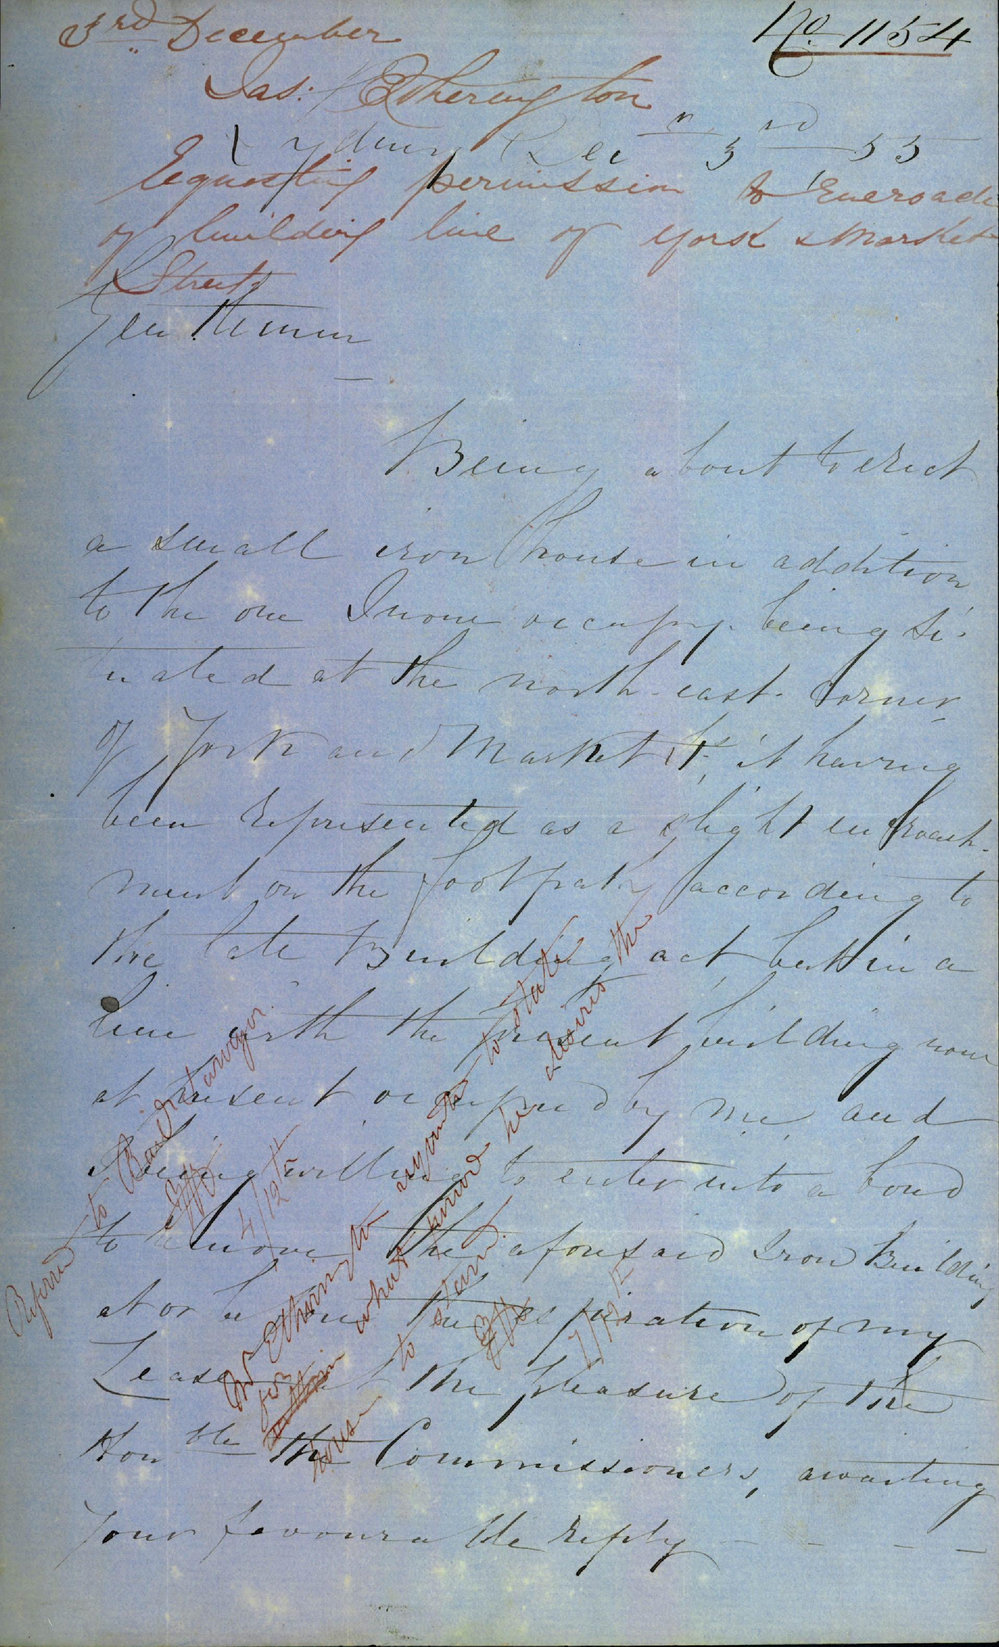 No. 1154
3rd December
Jas: Etherington
Sydney Decr 3rd 55
Requesting permission to encroach
of building line of York & Market
Streets
Gentlemen
Being about to erect
a small iron house in addition
to the one I now occupy being si-
tuated at the north-east corner
of York and Market Sts, it having
been represented as a slight encroach-
ment on the footpath according to
the late Building act, but in a
line with the present building now
at present occupied by me, and
being willing to enter into a bond
to remove the aforesaid Iron Building
at or before the expiration of my
Lease at the pleasure of the
Honble the Commissioners, awaiting
your favourable reply
Referred to
4/12
Mr Etherington requested to state
for what period he desires the
house to stand